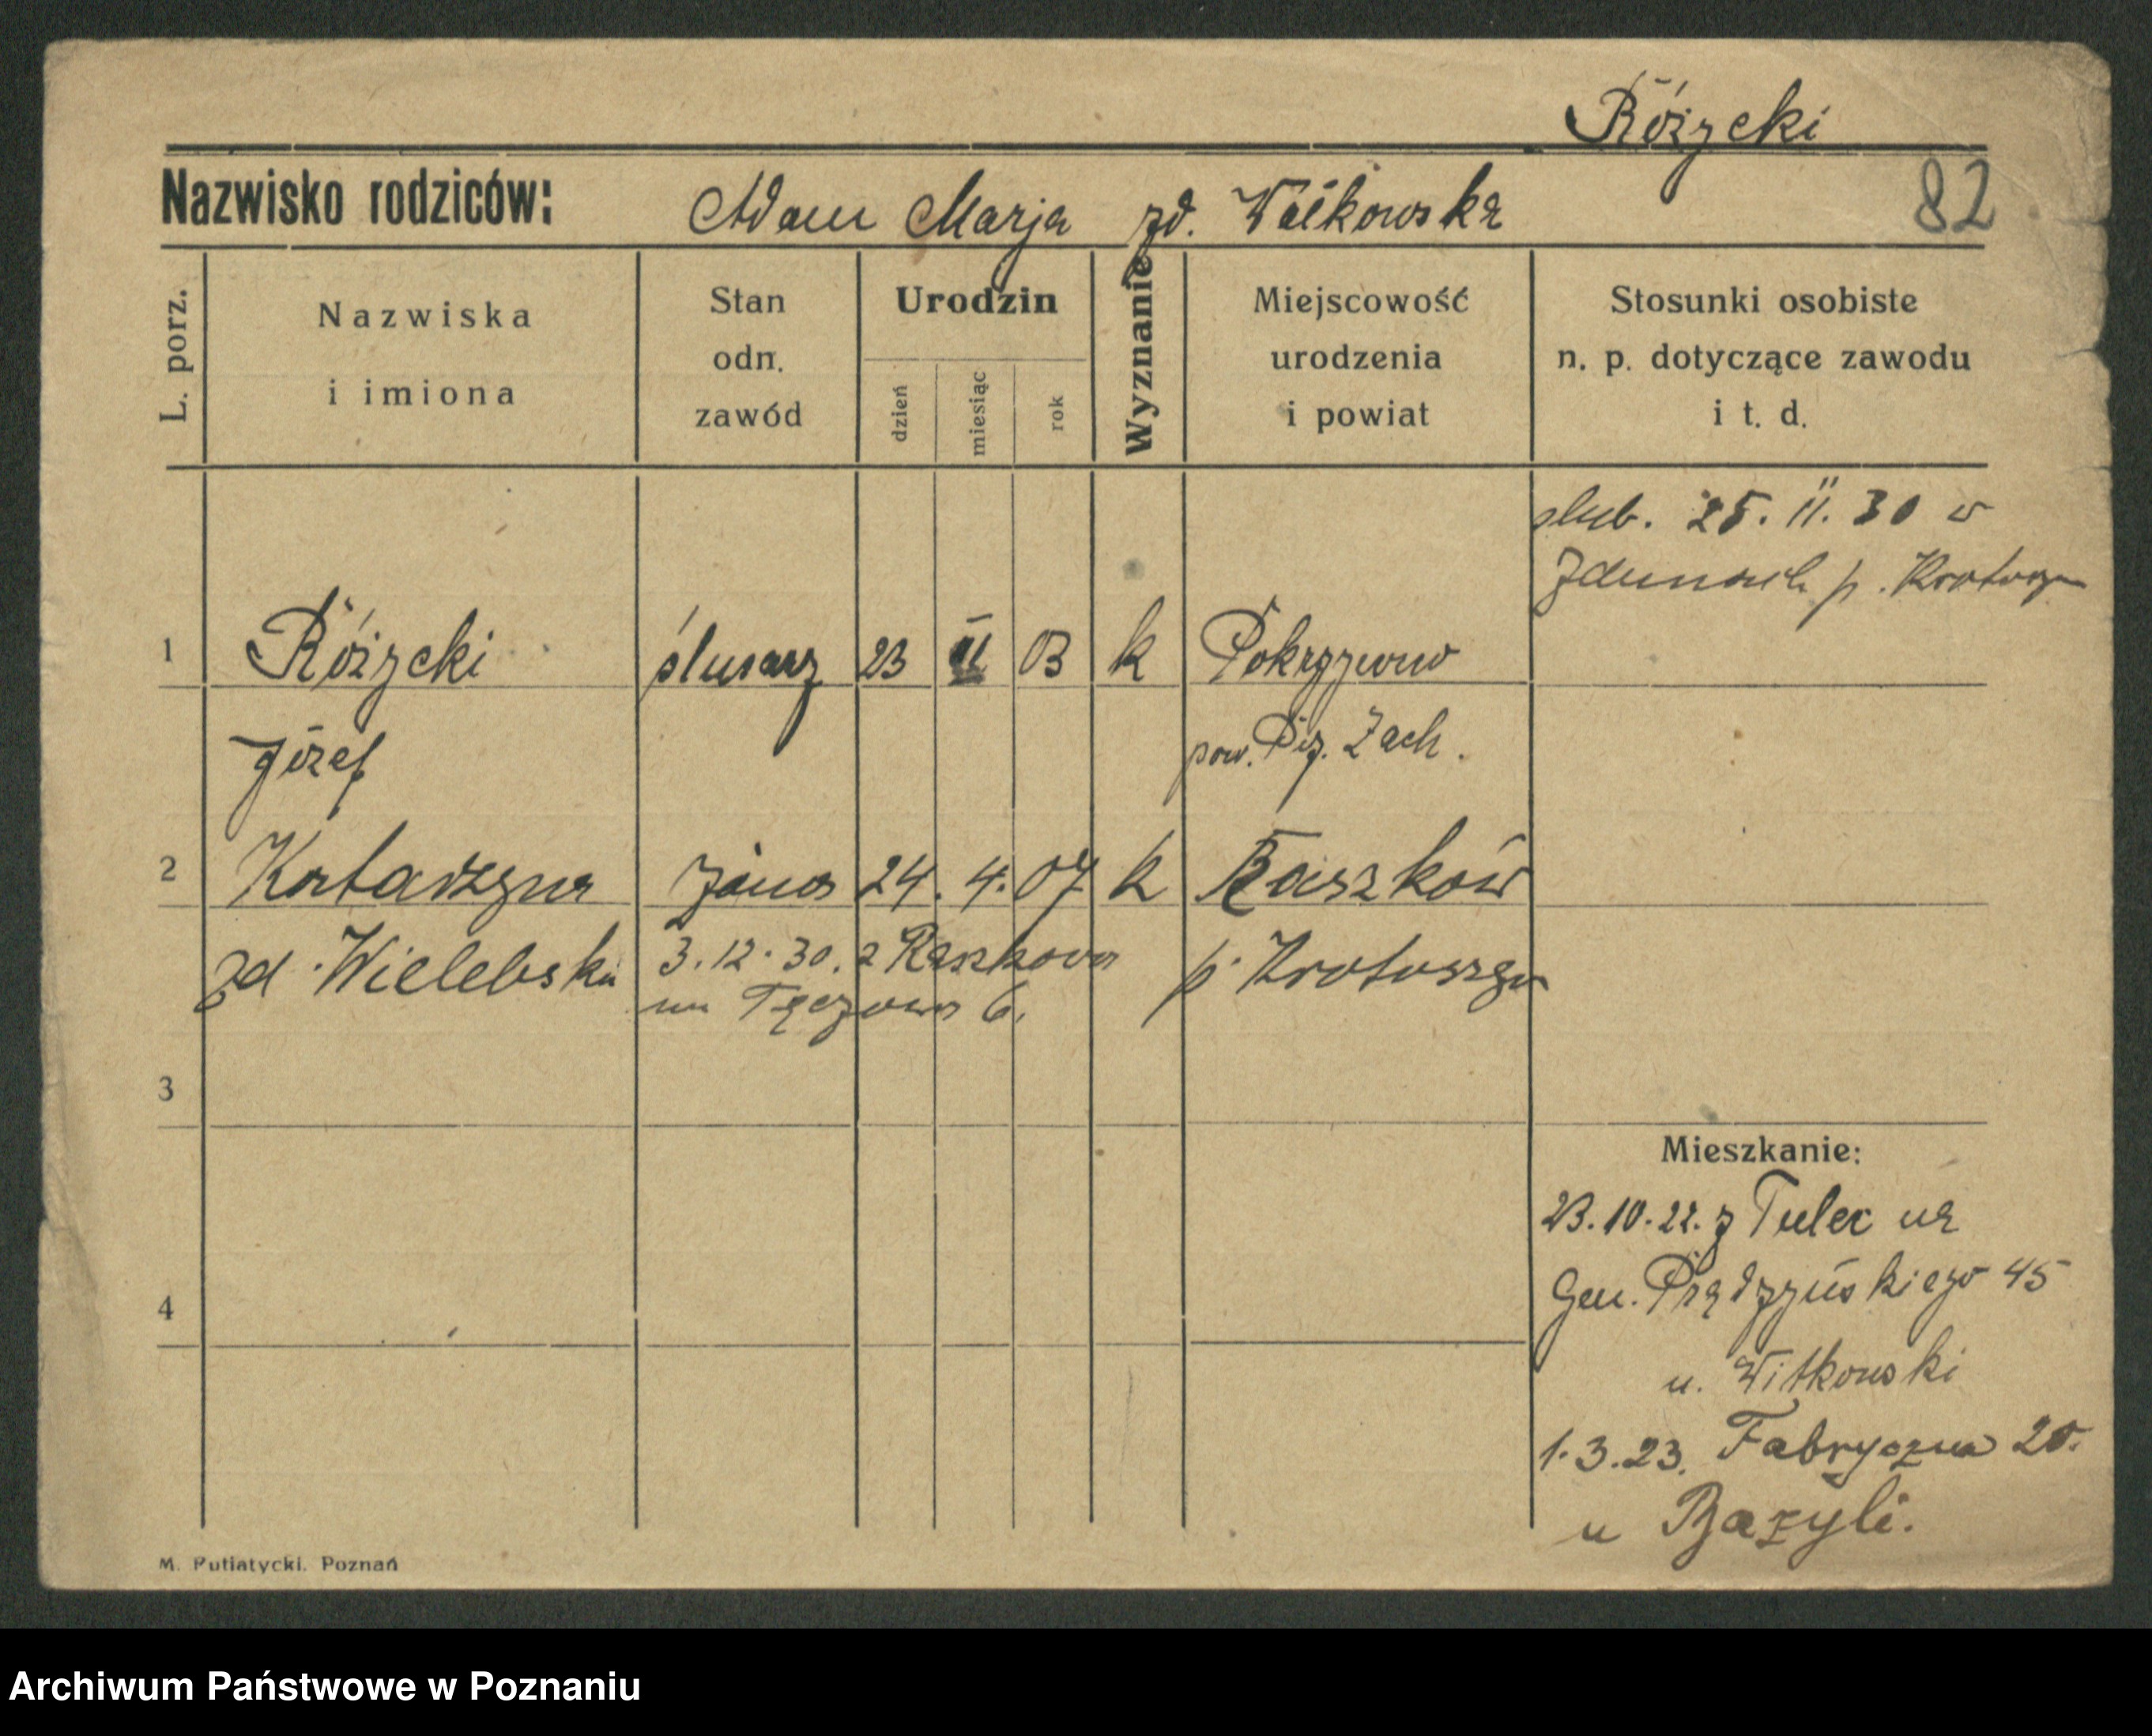 Różycki
82
Nazwisko rodziców: Adam Marja zd. Wałkowska
L. porz.
Nazwiska
i imiona
Stan
odn.
zawód
Urodzin
dzień
miesiąc
rok
Wyznanie
Miejscowość
urodzenia
i powiat
Stosunki osobiste
n. p. dotyczące zawodu
i t. d.
ślub. 25. 11. 30 w
Zdunach p. Krotoszyn
1 Różycki ślusarz 23 II 03 k Pokrzywno
Józef pow. Pz. Zach.
2 Katarzyna żona 24. 4. 07 k Raszków
zd. Wielebska 3.12.30. z Raszkowa p. Krotoszyn
na Tęczowa 6.
3
Mieszkanie:
23.10.22. z Tulec na
4
Gen. Prądzyńskiego 45
u. Witkowski
1.3.23. Fabryczna 20.
u Bazyli.
M. Putiatycki. Poznań
Archiwum Państwowe w Poznaniu